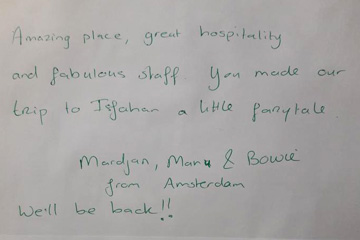 Amazing place, great hospitality
and fabulous staff You made our
trip to Isfahan a little fairytale.
Mardjan, Manu & Bowie
from Amsterdam
We'll be back!!